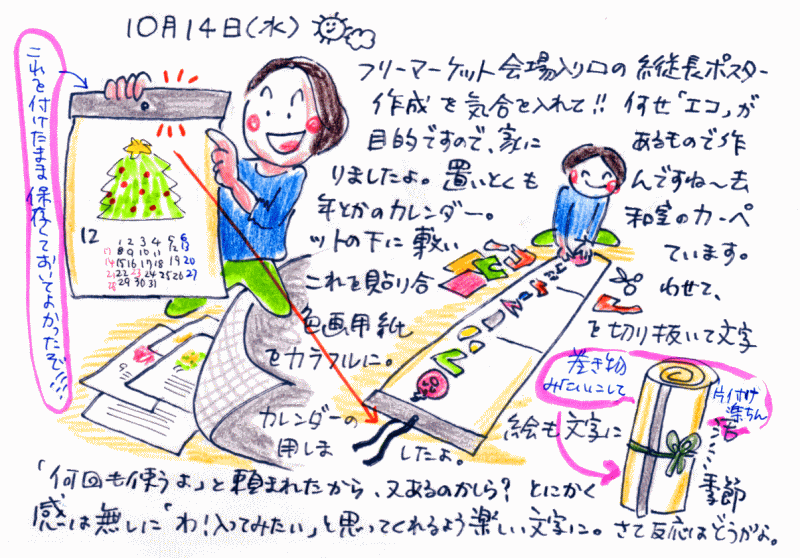 10月14日(水)
フリーマーケット会場入り口の縦長ポスター
作成を気合を入れて!! 何せ「エコ」が
目的ですので、家に あるもので作
りましたよ。置いとくも んですね〜去
年とかのカレンダー。 和室のカーペ
ットの下に敷い ています。
これを貼り合 わせて、
色画用紙 を切り抜いて文字
をカラフルに。
カレンダーの 絵も文字に 活
用しま したよ。
「何回も使うよ」と頼まれたから、又あるのかしら? とにかく 季節
感は無しに「わ!入ってみたい」と思ってくれるよう楽しい文字に。さて反応はどうかな。
これを付けたまま保存しておいてよかったぞ!!!!
12
1 2 3 4 5 6
8 9 10 11 12 13
14 15 16 17 18 19 20
21 22 23 24 25 26 27
28 29 30 31
巻き物
みたいにして
片付け
楽ちん